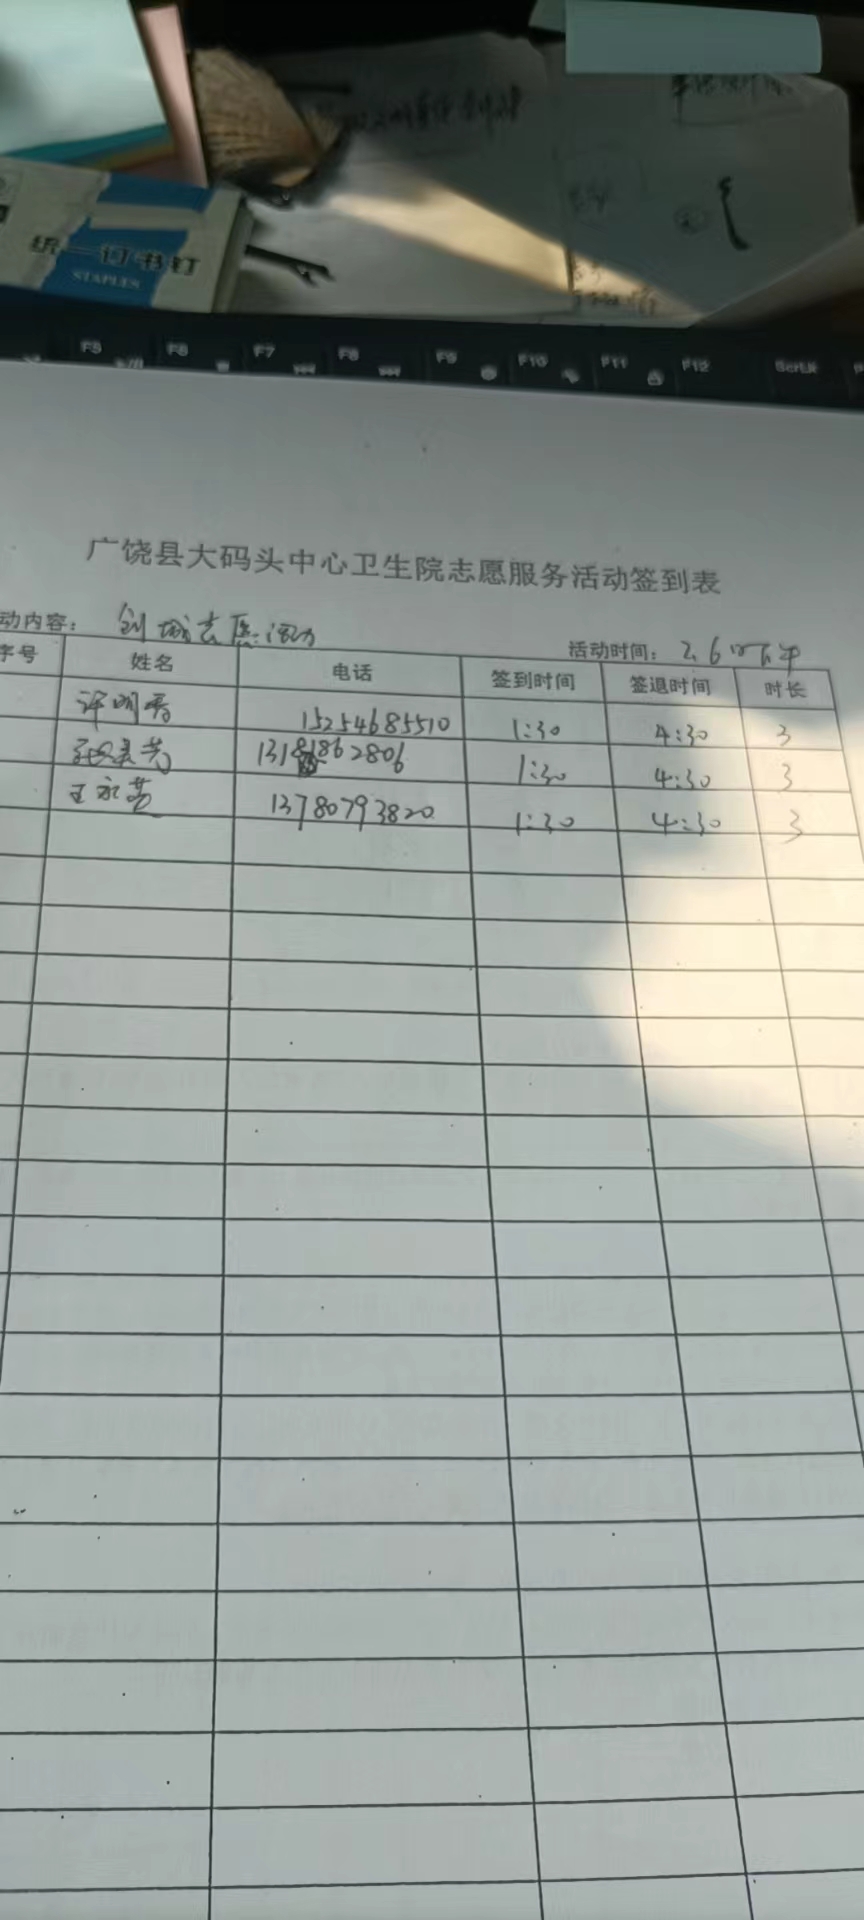 统一订书钉
STAPLES
F5 F6 F7 F8 F9 F10 F11 F12 ScrLk
广饶县大码头中心卫生院志愿服务活动签到表
动内容： 创城志愿活动 活动时间： 2.6日下午
序号 姓名 电话 签到时间 签退时间 时长
许明秀 15254685510 1:30 4:30 3
1:30 4:30 3
王永芸 13780793820 1:30 4:30 3